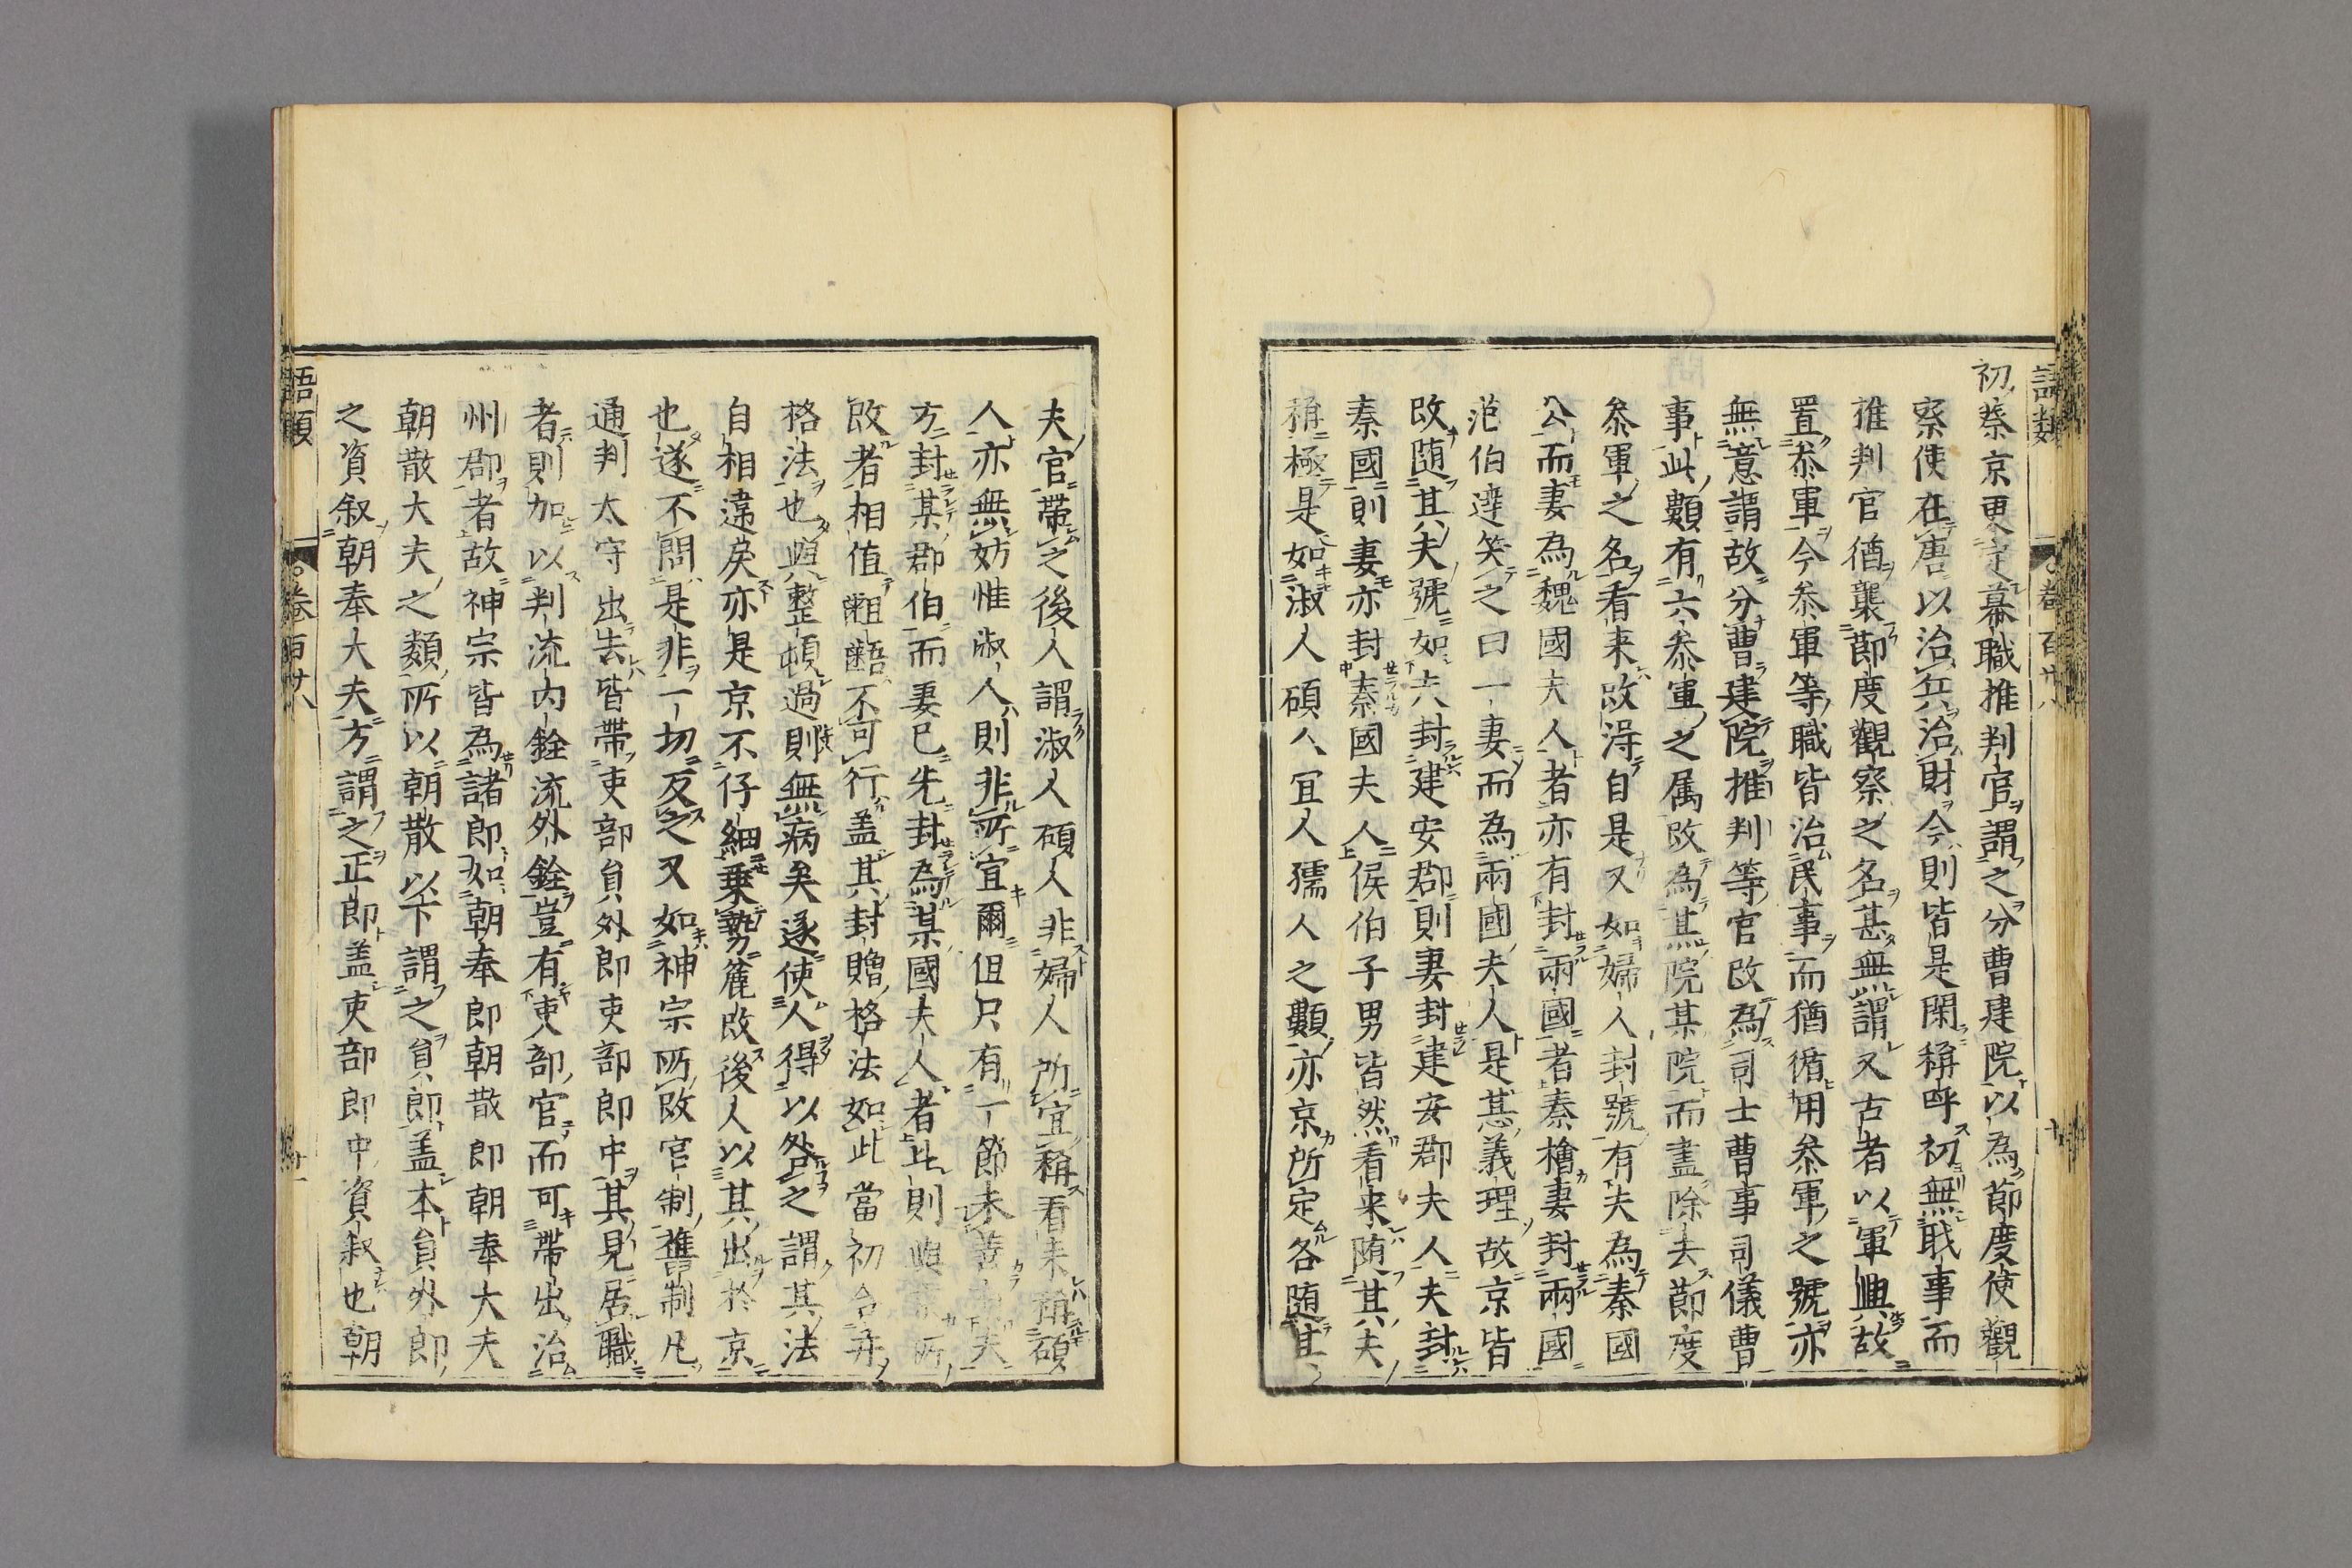 語類 卷百廿八 十
初蔡京更定幕職推判官謂之分曹建院以為節度使觀
察使在唐以治兵治財今則皆是閑稱呼初無職事而
推判官猶襲節度觀察之名甚無謂又古者以軍興故
置参軍今参軍等職皆治民事而猶循用参軍之號亦
無意謂故分曹建院推判等官改為司士曹事司儀曹
事此類有六参軍之属改為某院某院而盡除去節度
参軍之名看来改得自是又如婦人封號有夫為秦國
公而妻為魏國夫人者亦有封兩國者秦檜妻封兩國
范伯達笑之曰一妻而為兩國夫人是甚義理故京皆
改随其夫號如夫封建安郡則妻封建安郡夫人夫封
秦國則妻亦封秦國夫人侯伯子男皆然看来随其夫
稱極是如淑人碩人宜人孺人之類亦京所定各随其
夫官帶之後人謂淑人碩人非婦人所宜稱看来稱碩
人亦無妨惟淑人則非所宜爾但只有一節未善 夫
方封某郡伯而妻已先封為某國夫人者此則與 所
改者相值齟齬不可行盖其封贈格法如此當初合并
格法也與整頓過則無病矣遂使人得以咎之謂其法
自相違戾亦是京不仔細乗勢麄改後人以其出於京
也遂不問是非一切反之又如神宗所改官制舊制凡
通判太守出去皆帶吏部負外郎吏部郎中其見居職
者則加以判流内銓流外銓豈有吏部官而可帶出治
州郡者故神宗皆為諸郎如朝奉郎朝散郎朝奉大夫
朝散大夫之類所以朝散以下謂之負郎盖本負外郎
之資叙朝奉大夫方謂之正郎盖吏部郎中資叙也朝
語類 卷百廿八 十一